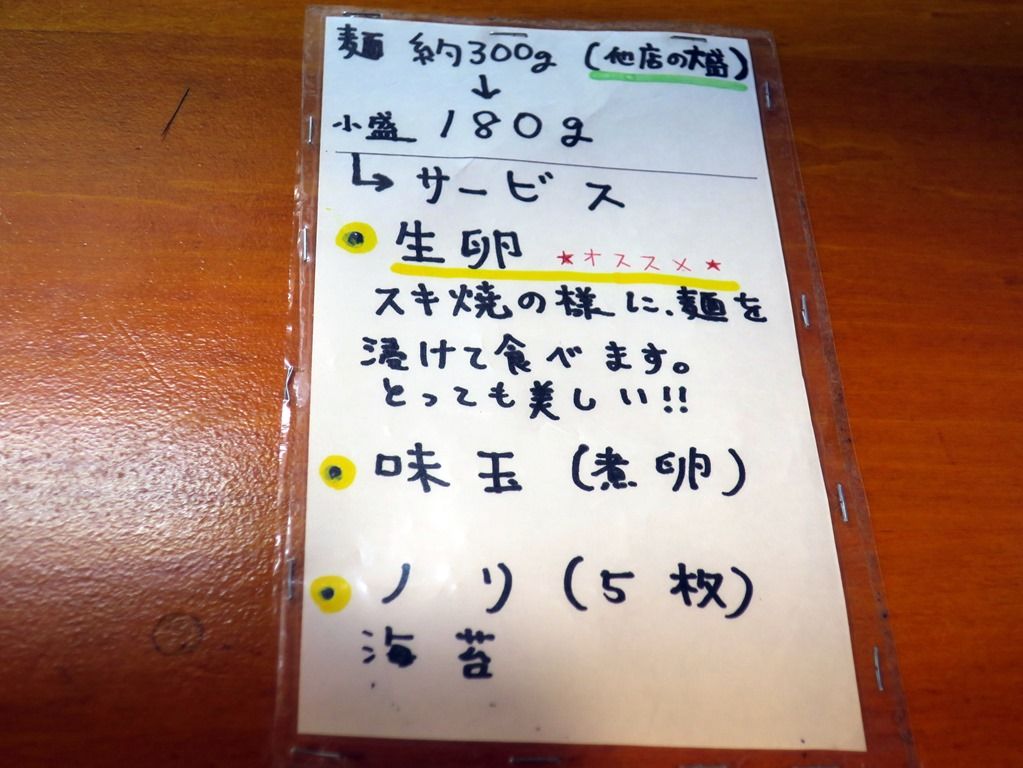 麺 約300g (他店の大盛)
↓
小盛 180g
↳ サービス
• 生卵 ★オススメ★
スキ焼の様に、麺を
浸けて食べます。
とっても美しい!!
• 味玉 (煮卵)
• ノリ (5枚)
海苔